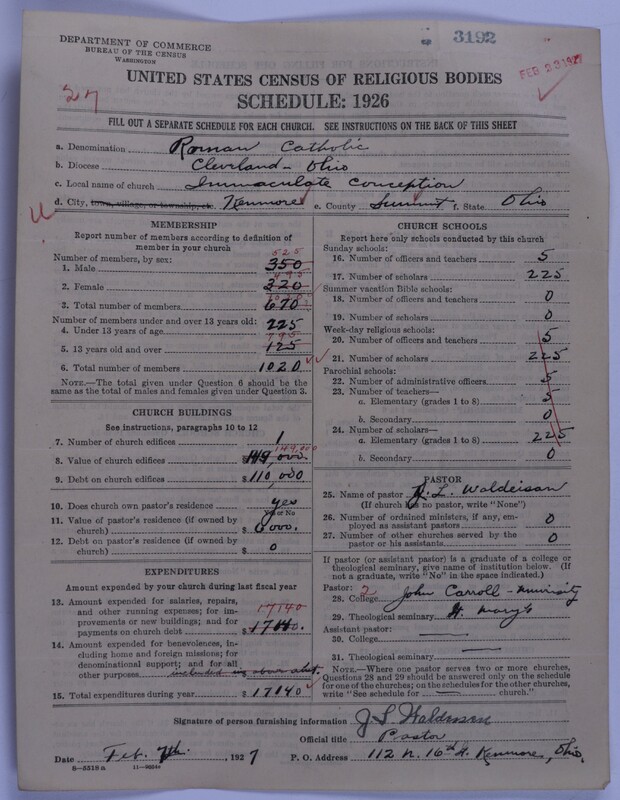 DEPARTMENT OF COMMERCE
BUREAU OF THE CENSUS
WASHINGTON
3192
FEB 23 1927
27
UNITED STATES CENSUS OF RELIGIOUS BODIES
SCHEDULE: 1926
FILL OUT A SEPARATE SCHEDULE FOR EACH CHURCH. SEE INSTRUCTIONS ON THE BACK OF THIS SHEET
a. Denomination Roman Catholic
b. Diocese Cleveland - Ohio
c. Local name of church Immaculate Conception
d. City, town, village, or township, etc. Kenmore e. County Summit f. State Ohio
MEMBERSHIP
Report number of members according to definition of
member in your church
Number of members, by sex:
525
1. Male 350
495
2. Female 320
3. Total number of members 670
Number of members under and over 13 years old:
4. Under 13 years of age 225
795
5. 13 years old and over 125
6. Total number of members 1020
NOTE.—The total given under Question 6 should be
the same as the total of males and females given under Question 3.
CHURCH BUILDINGS
See instructions, paragraphs 10 to 12
7. Number of church edifices 1
149,000
8. Value of church edifices $149,000.
9. Debt on church edifices $110,000
10. Does church own pastor's residence yes
Yes or No
11. Value of pastor's residence (if owned by
church) $6000.
12. Debt on pastor's residence (if owned by
church) $0
EXPENDITURES
Amount expended by your church during last fiscal year
13. Amount expended for salaries, repairs,
and other running expenses; for im-
provements or new buildings; and for
payments on church debt $17140.
17140
14. Amount expended for benevolences, in-
cluding home and foreign missions; for
denominational support; and for all
other purposes included in above
15. Total expenditures during year $17140
CHURCH SCHOOLS
Report here only schools conducted by this church
Sunday schools:
16. Number of officers and teachers 5
17. Number of scholars 225
Summer vacation Bible schools:
18. Number of officers and teachers 0
19. Number of scholars 0
Week-day religious schools:
20. Number of officers and teachers 5
21. Number of scholars 225
Parochial schools:
22. Number of administrative officers 5
23. Number of teachers—
a. Elementary (grades 1 to 8) 5
b. Secondary 0
24. Number of scholars—
a. Elementary (grades 1 to 8) 225
b. Secondary 0
PASTOR
25. Name of pastor J. L. Waldeisan
(If church has no pastor, write "None")
26. Number of ordained ministers, if any, em-
ployed as assistant pastors 0
27. Number of other churches served by the
pastor or his assistants 0
If pastor (or assistant pastor) is a graduate of a college or
theological seminary, give name of institution below. (If
not a graduate, write "No" in the space indicated.)
Pastor: 2
28. College John Carroll -
29. Theological seminary St. Mary's
Assistant pastor:
30. College
31. Theological seminary
NOTE.—Where one pastor serves two or more churches,
Questions 28 and 29 should be answered only on the schedule
for one of the churches; on the schedules for the other churches,
write "See schedule for church."
Signature of person furnishing information
Official title Pastor
Date Feb. 7th, 1927 P. O. Address 112 N. 16th St. Kenmore, Ohio.
8-5518a